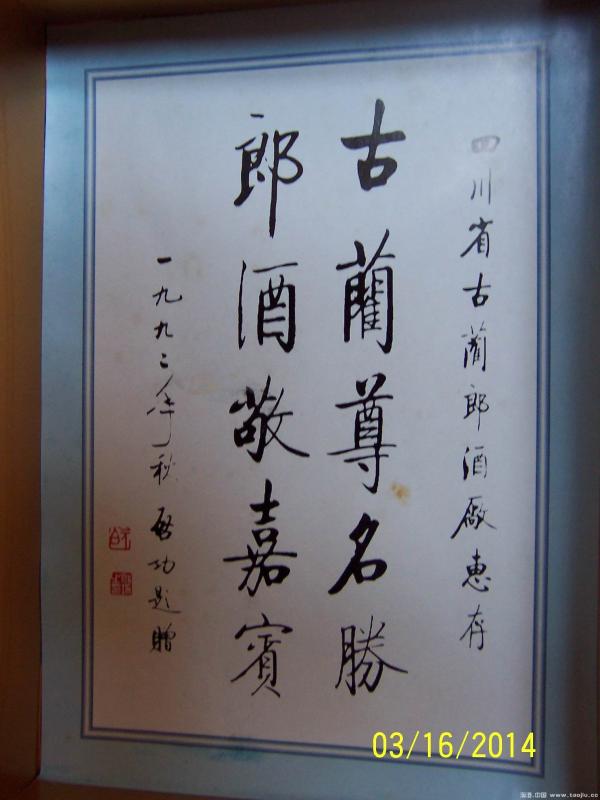 四川省古蔺郎酒廠惠存
古藺尊名勝
郎酒敬嘉賓
一九九二年秋 啓功題贈
03/16/2014
淘酒.中国 www.taojiu.cc